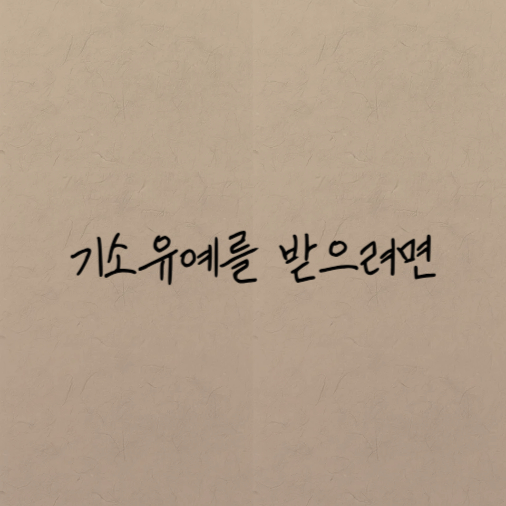 기소유예를 받으려면